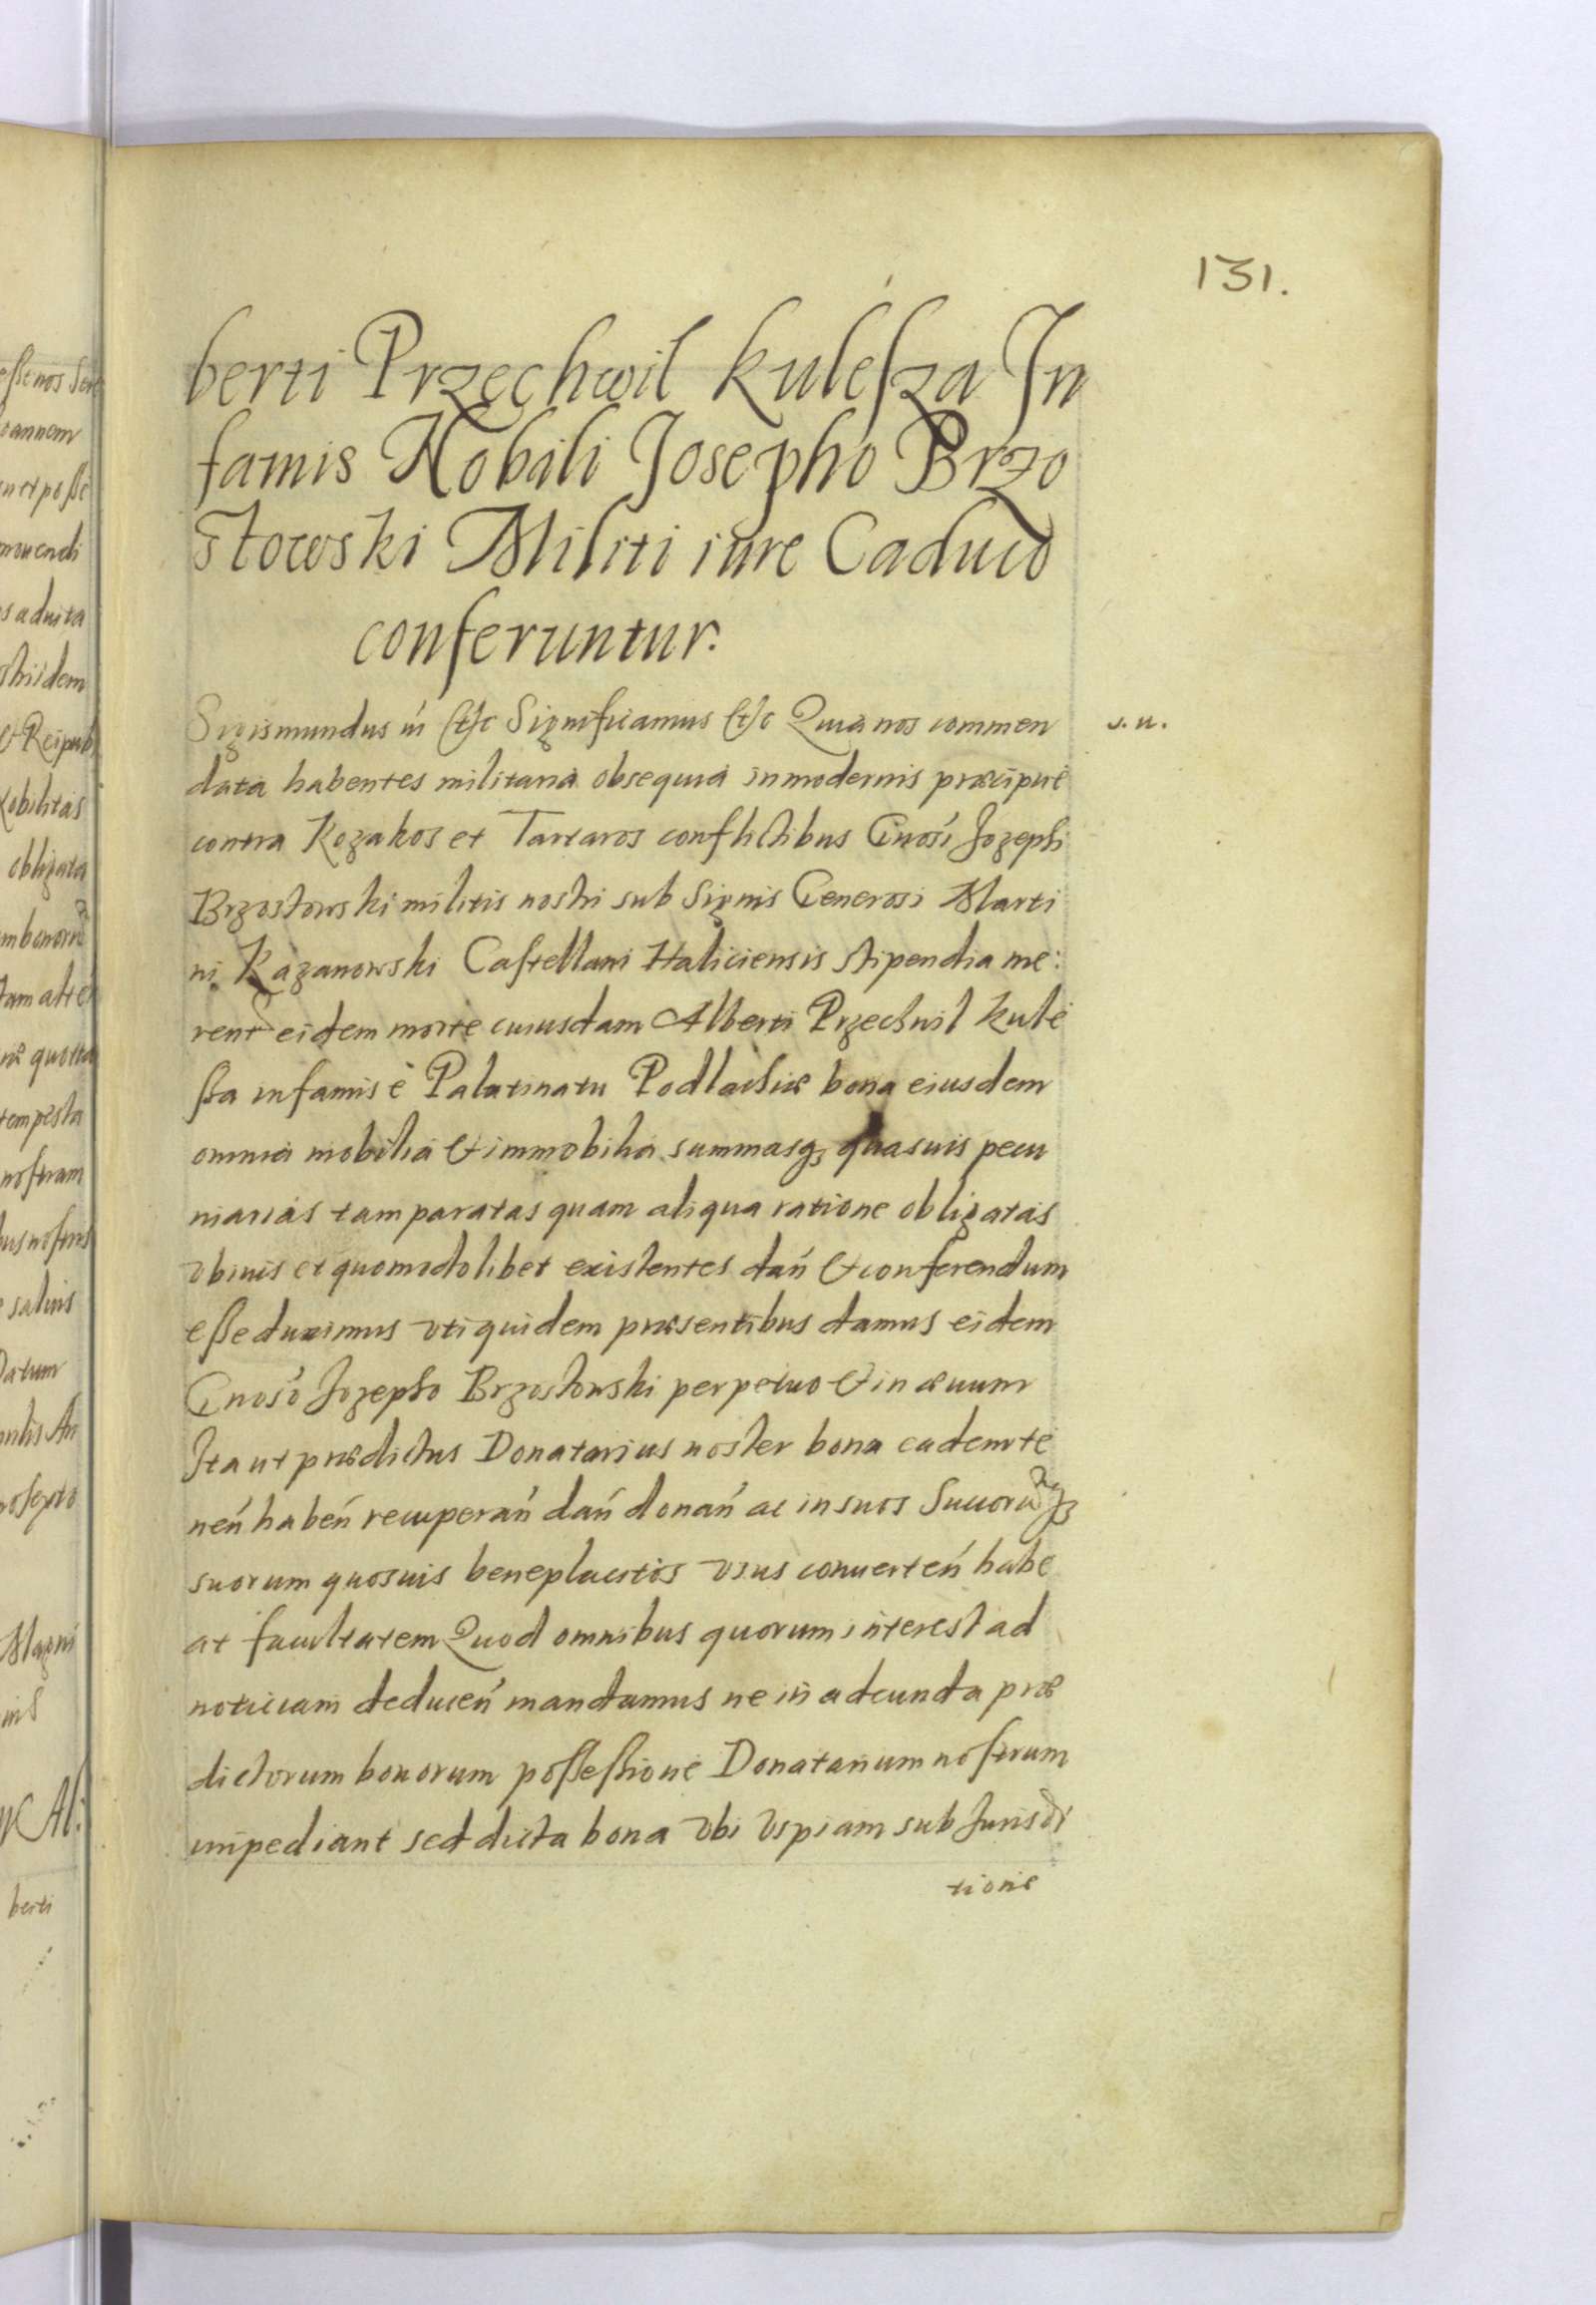 131.
berti Przechwil Kulesza In
famis Nobili Josepho Brzo
stowski Militi iure Caduco
conferuntur.
Sigismundus III &c Significamus &c Quia nos commen
s. u.
data habentes militaria obsequia in modernis præcipue
contra Kozakos et Tartaros conflictibus Gnosi Jozephi
Brzostowski militis nostri sub Signis Generosi Marti
ni Kazanowski Castellani Haliciensis stipendia me:
rent eidem morte cuiusdam Alberti Przechwil Kule
ssa infamis è Palatinatu Podlachiæ bona eiusdem
omnia mobilia & immobilia summasq; quasuis pecu
niarias tam paratas quam aliqua ratione obligatas
vbiuis et quomodolibet existentes dań & conferendum
esse duximus vti quidem præsentibus damus eidem
Gnoso Jozepho Brzostowski perpetuo & in æuum
Ita ut prædictus Donatarius noster bona eadem te
neń habeń recuperań dań donań ac in suos Succorumq;
suorum quosuis beneplacitos vsus conuerteń habe
at facultatem Quod omnibus quorum interest ad
noticiam deduceń mandamus ne in adeunda præ
dictorum bonorum possessione Donatarium nostrum
impediant sed dicta bona vbi vspiam sub Jurisdi
tione